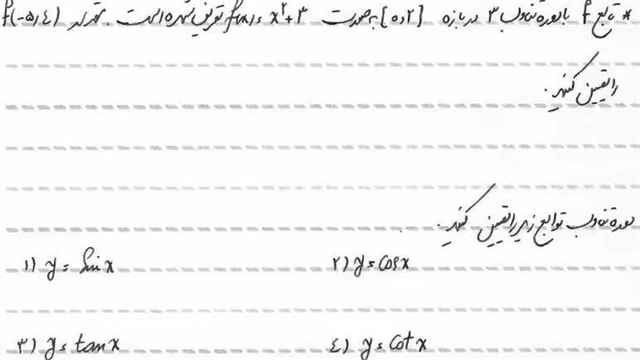 * تابع f با دوره تناوب ۳ در بازه [۲ و ۰] به صورت f(x) = x² + ۳ تعریف شده است. مقدار f(-۵٫٤)
را تعیین کنید.
دوره تناوب توابع زیر را تعیین کنید.
۱) y = Sin x ۲) y = Cos x
۳) y = tan x ٤) y = Cot x